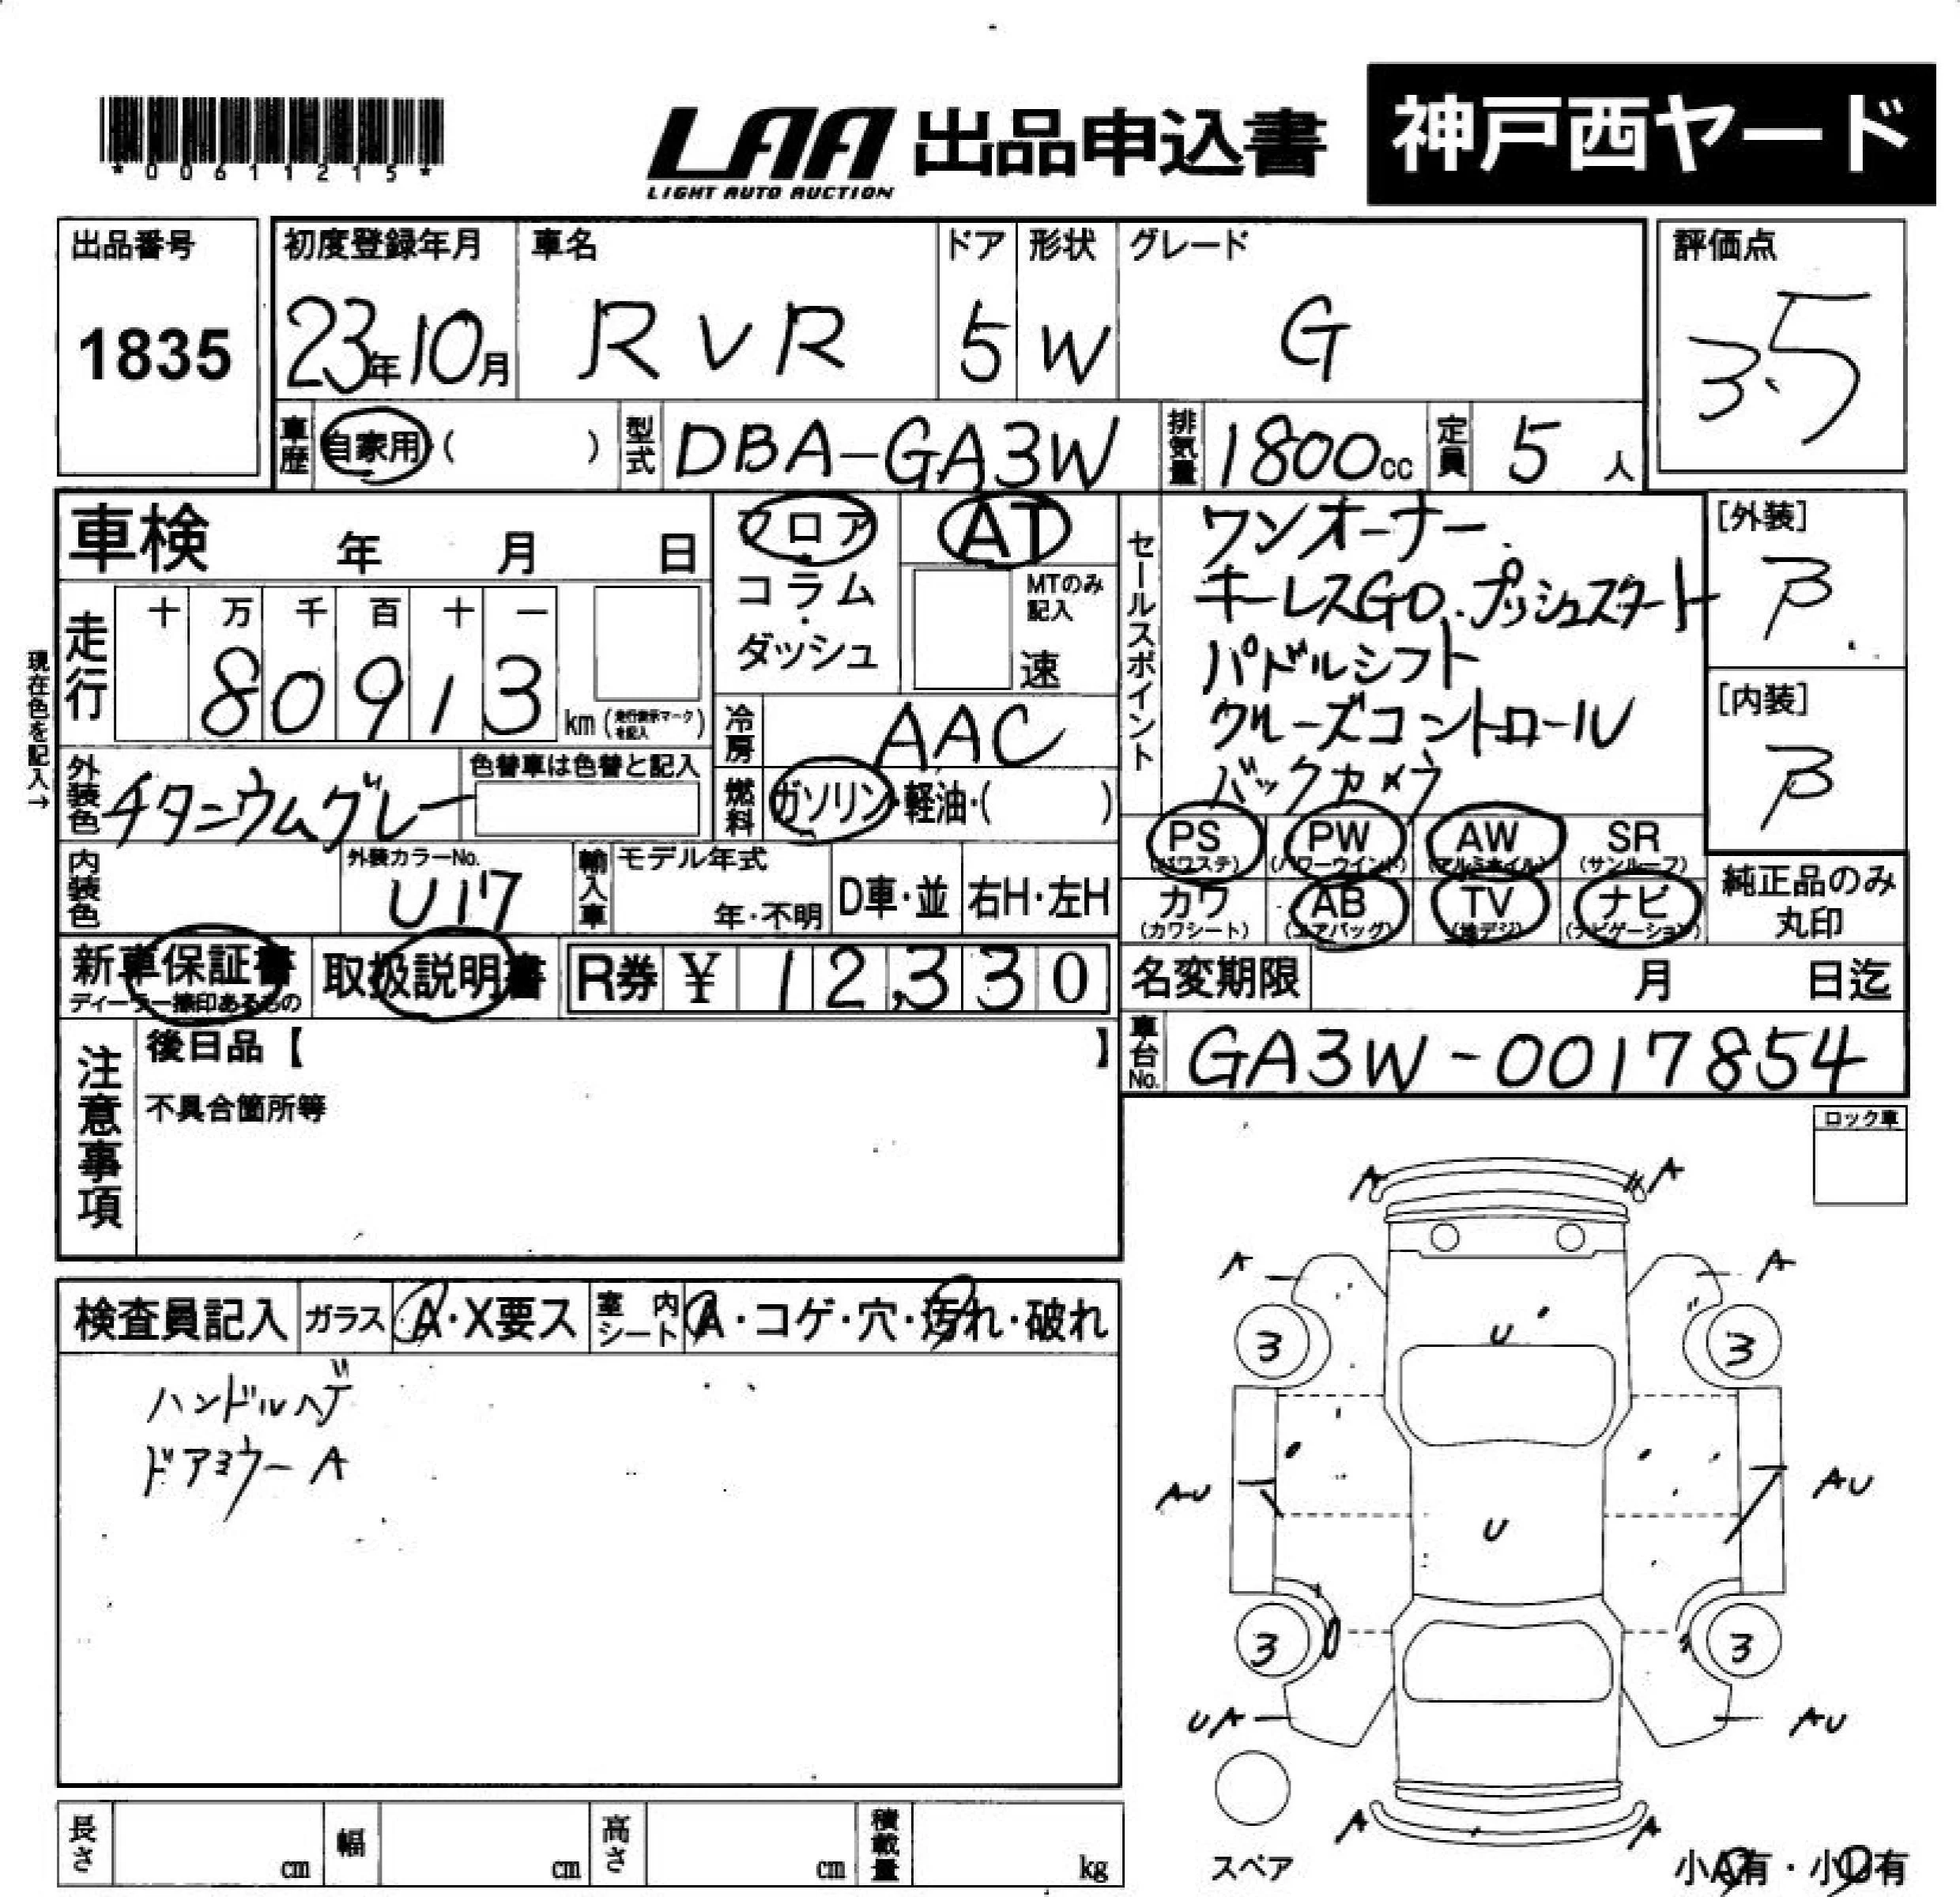 *00611215*
LAA 出品申込書 神戸西ヤード
LIGHT AUTO AUCTION
出品番号 初度登録年月 車名 ドア 形状 グレード 評価点
1835 23年10月 RVR 5 W G 3.5
車歴 自家用 ( ) 型式 DBA-GA3W 排気量 1800cc 定員 5 人
車検 年 月 日
フロア・コラム・ダッシュ
AT
MTのみ記入
速
走行 十 万 千 百 十 一
80913 km (走行表示マークを記入)
現在色を記入→
冷房 AAC
外装色 チタニウムグレー 色替車は色替と記入
燃料 ガソリン・軽油・( )
内装色 外装カラーNo. U17 輸入車 モデル年式 年・不明 D車・並 右H・左H
セールスポイント
ワンオーナー
キーレスGO.プッシュスタート
パドルシフト
クルーズコントロール
バックカメラ
[外装]
B
[内装]
B
PS (パワステ) PW (パワーウインド) AW (アルミホイル) SR (サンルーフ)
カワ (カワシート) AB (エアバッグ) TV (地デジ) ナビ (ナビゲーション)
純正品のみ丸印
新車保証書 取扱説明書 R券 ¥ 12,330
ディーラー捺印あるもの
名変期限 月 日迄
車台No. GA3W-0017854
注意事項
後日品【 】
不具合箇所等
ロック車
検査員記入 ガラス A・X要ス 室内シート A・コゲ・穴・汚れ・破れ
ハンドルハゲ
ドアミラーA
A A
A A
3 U 3
AU U AU
3 3
UA AU
A A
スペア
小A有・小U有
長さ cm 幅 cm 高さ cm 積載量 kg